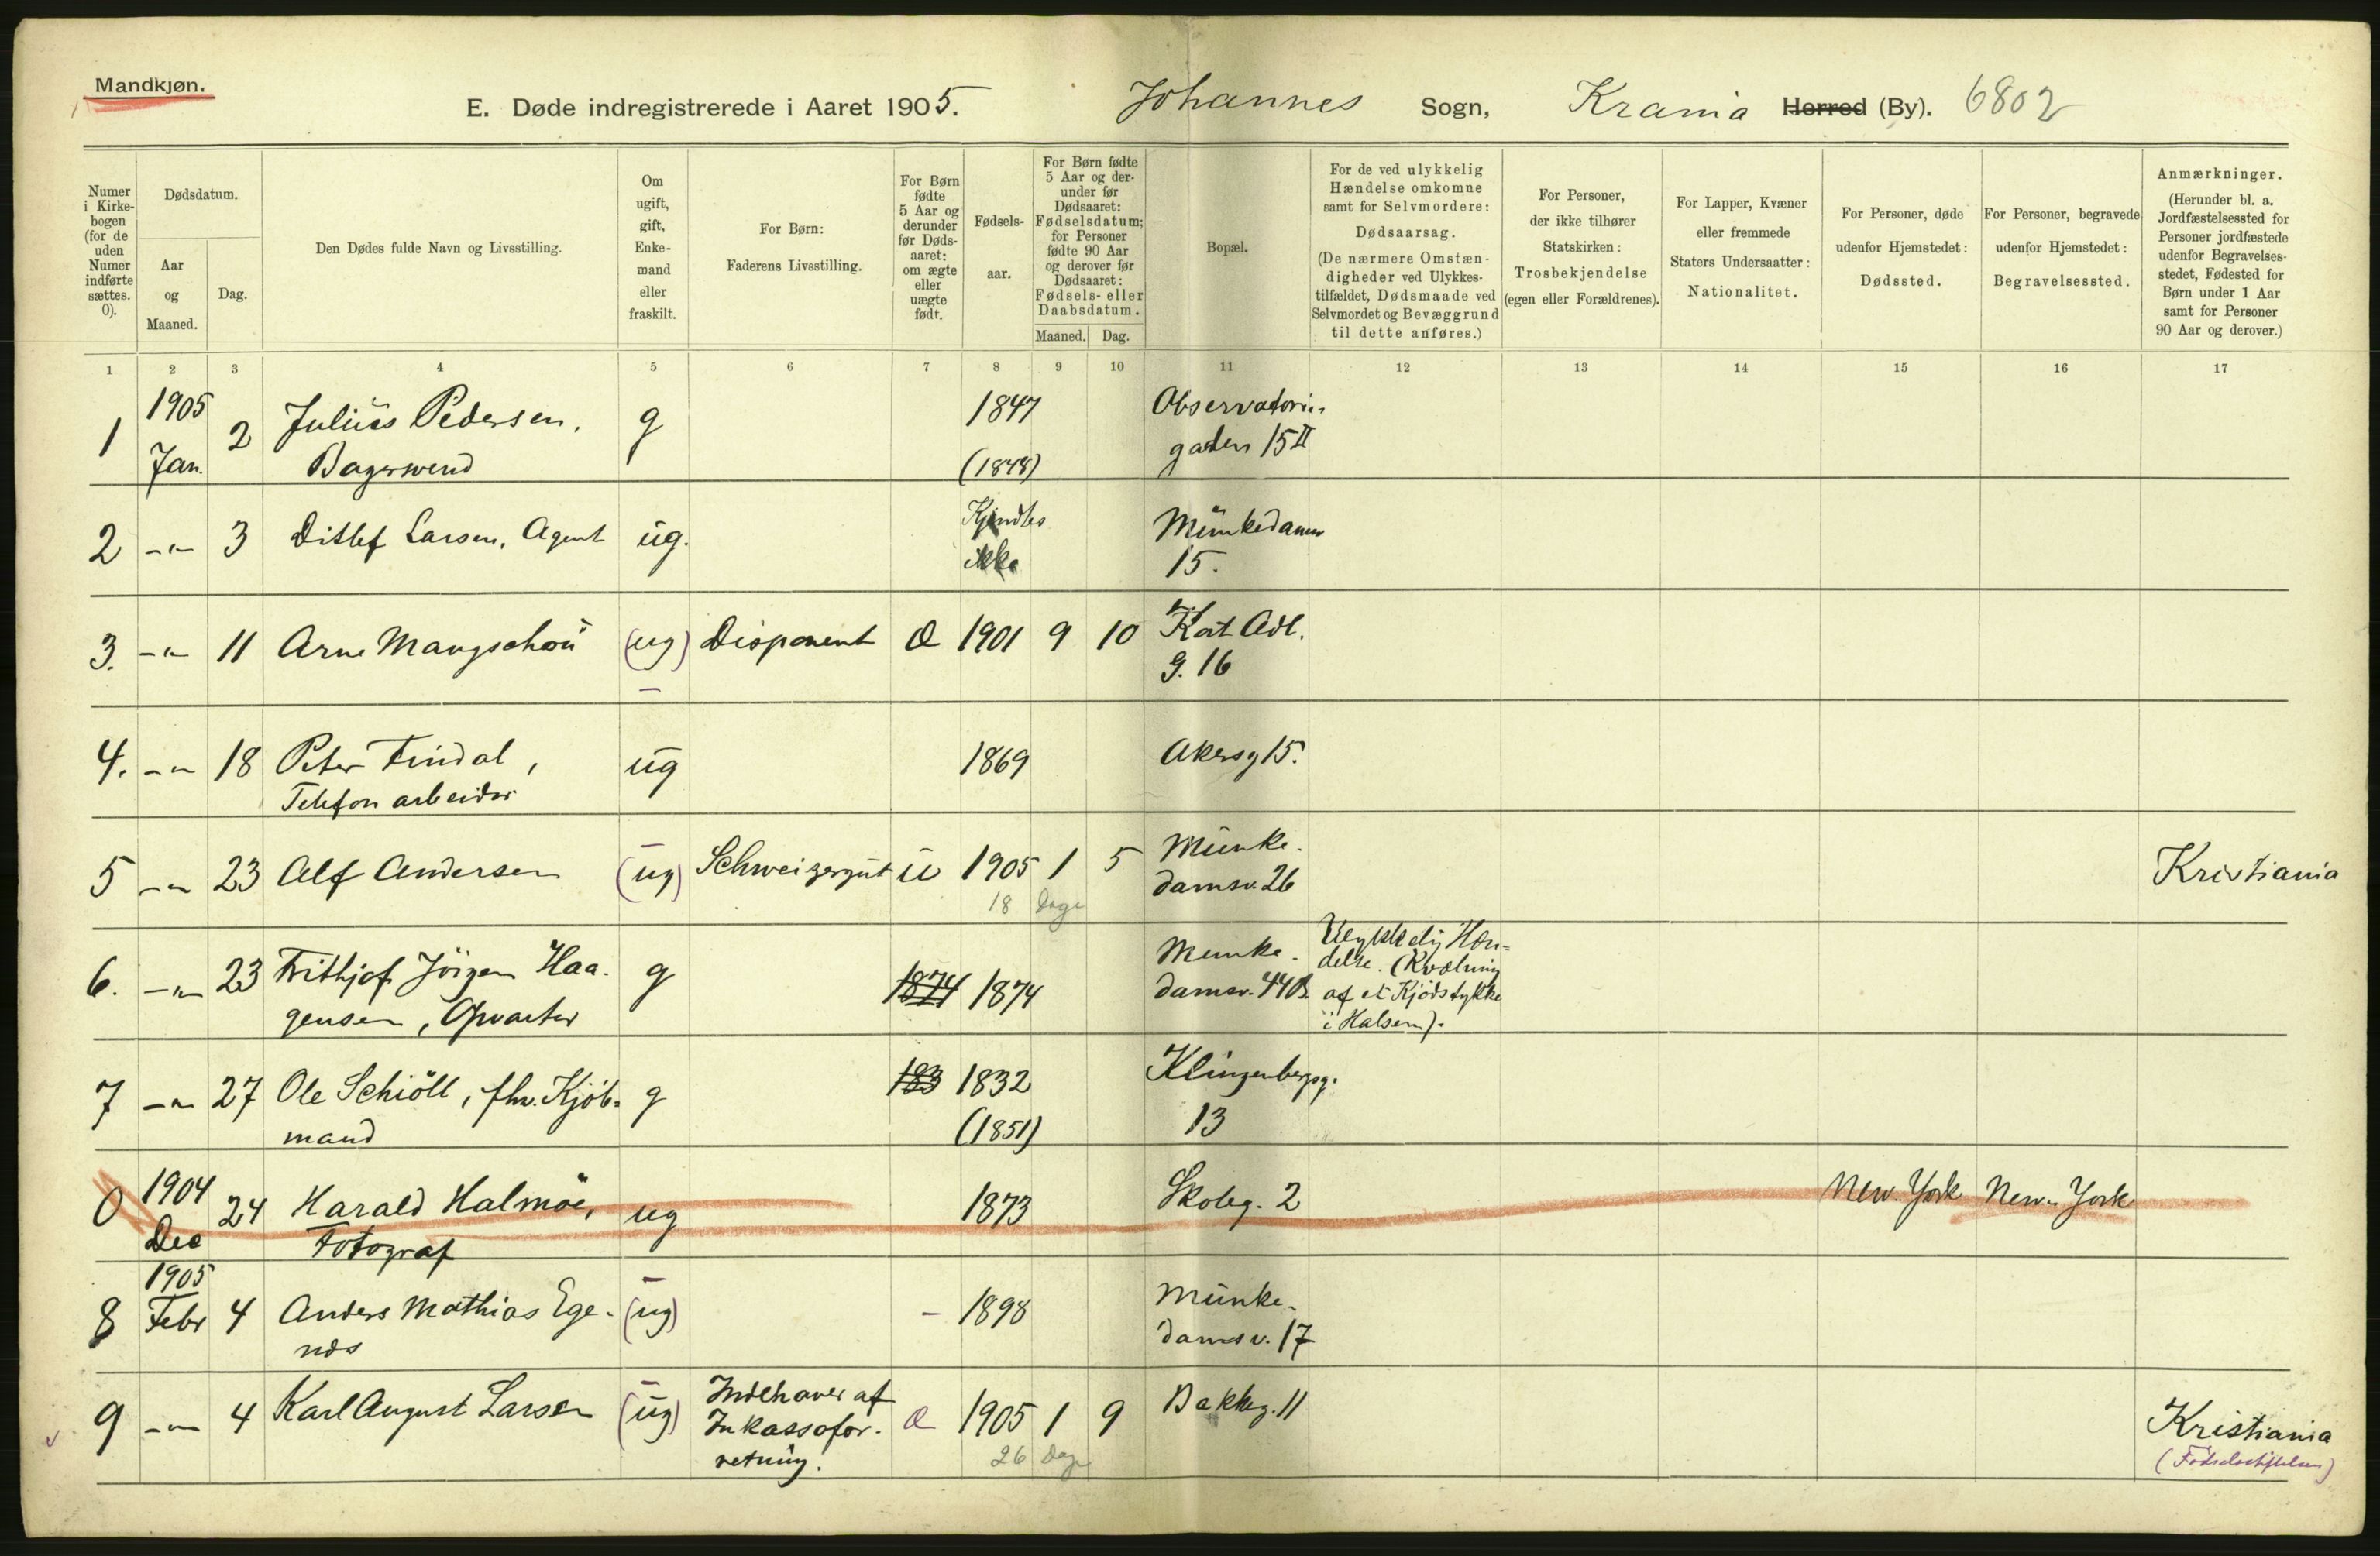 Mandkjøn.
E. Døde indregistrerede i Aaret 1905. Johannes Sogn, Krania Herred (By). 6802
Numer i Kirkebogen (for de uden Numer indførte sættes. 0).
Dødsdatum.
Aar og Maaned.
Dag.
Den Dødes fulde Navn og Livsstilling.
Om ugift, gift, Enkemand eller fraskilt.
For Børn: Faderens Livsstilling.
For Børn fødte 5 Aar og derunder før Dødsaaret: om ægte eller uægte født.
Fødselsaar.
For Børn fødte 5 Aar og derunder før Dødsaaret: Fødselsdatum; for Personer fødte 90 Aar og derover før Dødsaaret: Fødsels- eller Daabsdatum.
Maaned. Dag.
Bopæl.
For de ved ulykkelig Hændelse omkomne samt for Selvmordere: Dødsaarsag. (De nærmere Omstændigheder ved Ulykkestilfældet, Dødsmaade ved Selvmordet og Bevæggrund til dette anføres.)
For Personer, der ikke tilhører Statskirken: Trosbekjendelse (egen eller Forældrenes).
For Lapper, Kvæner eller fremmede Staters Undersaatter: Nationalitet.
For Personer, døde udenfor Hjemstedet: Dødssted.
For Personer, begravede udenfor Hjemstedet: Begravelsessted.
Anmærkninger. (Herunder bl. a. Jordfæstelsessted for Personer jordfæstede udenfor Begravelsesstedet, Fødested for Børn under 1 Aar samt for Personer 90 Aar og derover.)
1 2 3 4 5 6 7 8 9 10 11 12 13 14 15 16 17
1 1905 Jan. 2 Julius Pedersen, Bagersvend g 1847 (1848) Observatoriegaden 15 II
2 -"- 3 Ditlef Larsen, Agent ug. Kjendtes ikke Munkedamsv 15.
3. -"- 11 Arne Mangschou (ug) Disponent Æ 1901 9 10 Kat Adl. g. 16
4. -"- 18 Peter Findal, Telefonarbeider ug 1869 Akersg 15.
5 -"- 23 Alf Andersen (ug) Schweizergut u 1905 1 5 Munkedamsv. 26 Kristiania
18 Dage
6. -"- 23 Frithjof Jörgen Haagensen, Opvarter g 1874 1874 Munkedamsv. 44 B. Ulykkelig Hændelse. (Kvælning af et Kjödstykke i Halsen).
7 -"- 27 Ole Schiöll, fhv. Kjöbmand g 183 1832 (1851) Klingenbergg. 13
0 1904 Dec 24 Harald Halmöe, Fotograf ug 1873 Skoleg. 2 New York New-York
8 1905 Febr 4 Anders Mathias Egenæs (ug) - 1898 Munkedamsv. 17
9 -"- 4 Karl August Larsen (ug) Indehaver af Inkassoforretning. Æ 1905 1 9 Bakkeg. 11 Kristiania
26 Dage (Fødselsstiftelsen)